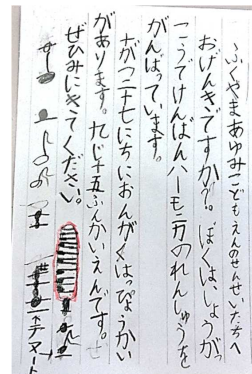 ふくやまあゆみこどもえんのせんせいたちへ
おげんきですか？。ぼくはしょうがっ
こうでけんばんハーモニカのれんしゅうを
がんばっています。
十がつ二十七にちにおんがくはっぴょうかい
があります。九じ十五ふんかいえんです。
ぜひみにきてください。